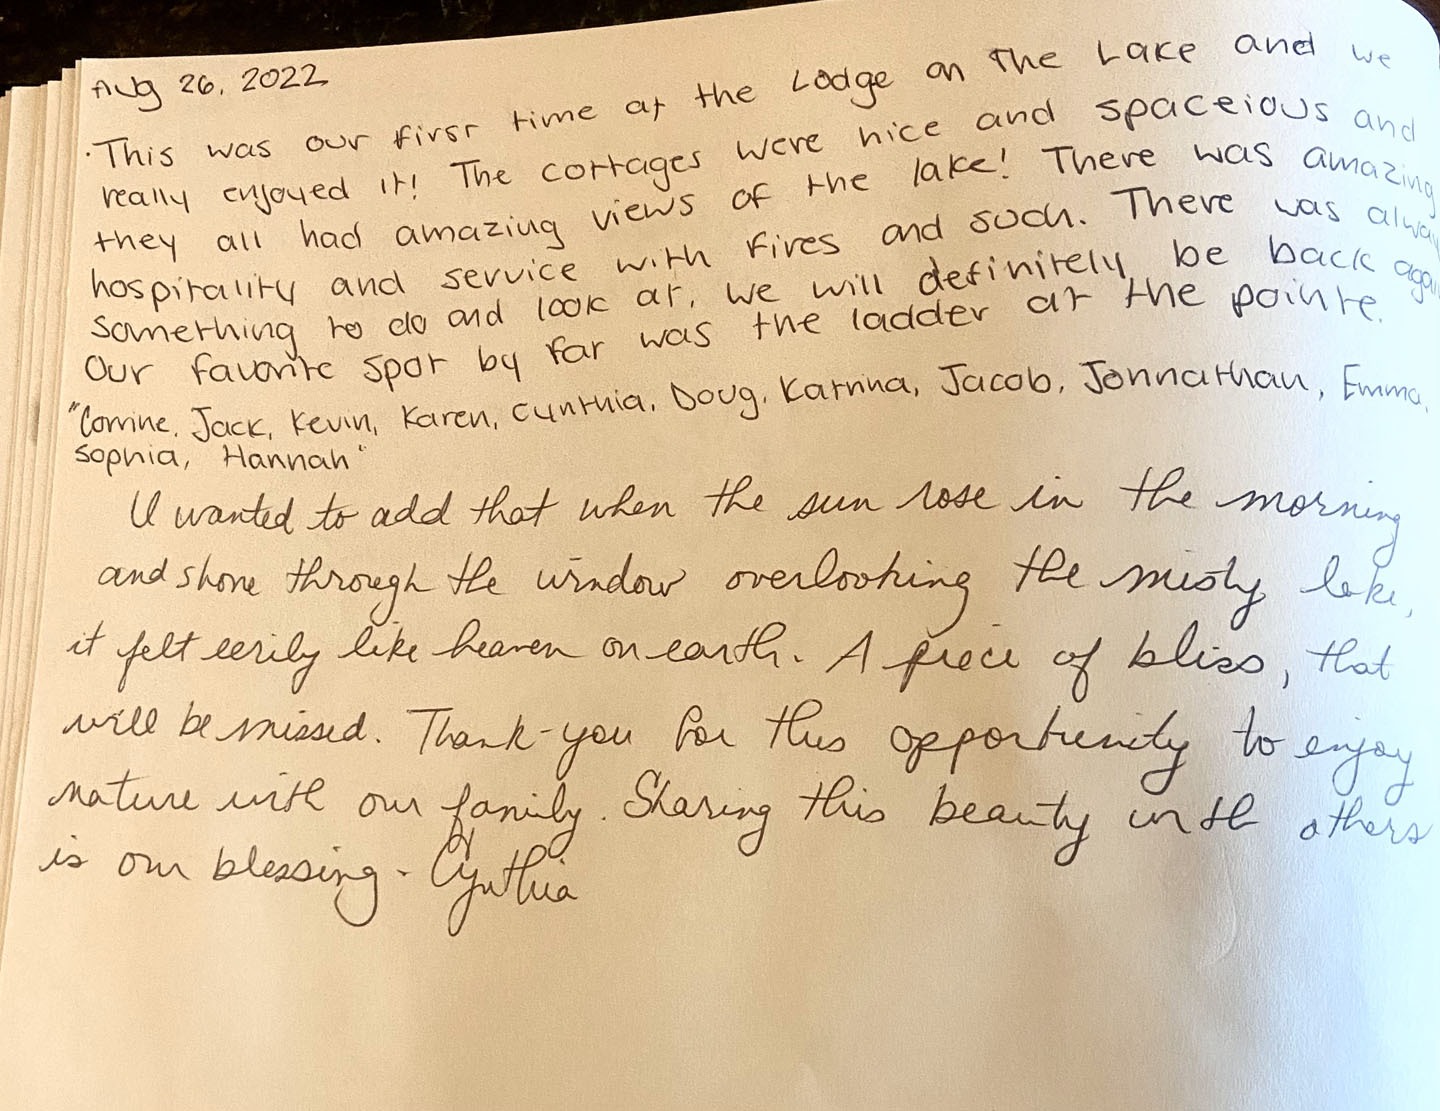 Aug 26, 2022
.This was our first time at the Lodge on The Lake and we
really enjoyed it! The cottages were nice and spaceious and
they all had amazing views of the lake! There was amazing
hospitality and service with fires and such. There was alway
something to do and look at, we will definitely be back again
Our favorite spot by far was the ladder at the pointe.
"Corrine, Jack, Kevin, Karen, Cynthia, Doug, Katrina, Jacob, Jonnathan, Emma,
Sophia, Hannah"
I wanted to add that when the sun rose in the morning
and shone through the window overlooking the misty lake,
it felt eerily like heaven on earth. A piece of bliss, that
will be missed. Thank-you for this opportunity to enjoy
nature with our family. Sharing this beauty with others
is our blessing - Cynthia